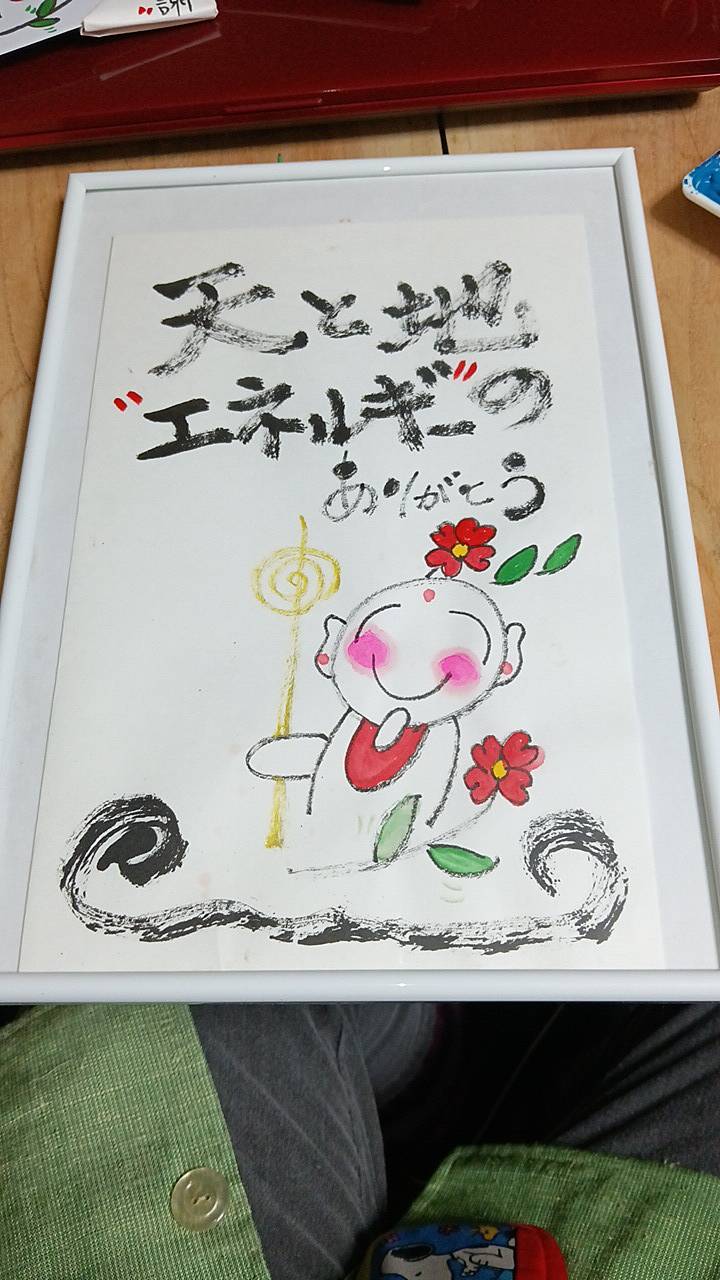 天と地
"エネルギー"の
ありがとう
謝